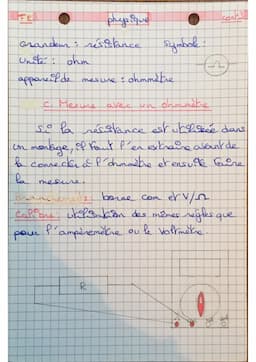 TE1
physique
Grandeur : résistance   symbole :
unité : ohm
appareil de mesure : ohmmètre
C. Mesure avec un ohmmètre
Si la résistance est utilisée dans
un montage, il faut l'en extraire avant de
la connecter à l'ohmmètre et ensuite faire
la mesure.
Branchements : borne com et V/Ω
Calibre : utilisation des mêmes règles que
pour l'ampèremètre ou le voltmètre.
R